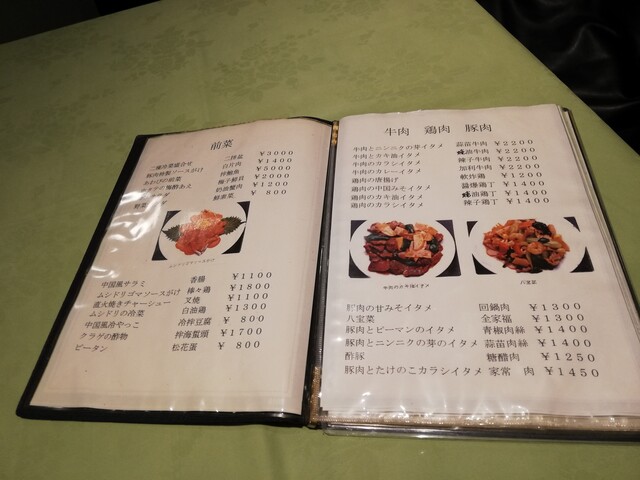 前菜
二種冷菜盛合せ 二拌盆 ¥3000
豚肉特製ソースがけ 白片肉 ¥1400
あわびの前菜 拌鮑魚 ¥5000
¥2000
奶油蟹肉 ¥1200
¥ 800
ムシドリゴマソースがけ
中国風サラミ 香腸 ¥1100
ムシドリゴマソースがけ 棒々鶏 ¥1800
直火焼きチャーシュー 叉焼 ¥1100
ムシドリの冷菜 白油鶏 ¥1300
中国風冷やっこ 冷拌豆腐 ¥ 800
クラゲの酢物 拌海蜇頭 ¥1700
ピータン 松花蛋 ¥ 800
牛肉 鶏肉 豚肉
牛肉とニンニクの芽イタメ 蒜苗牛肉 ¥2200
牛肉とカキ油イタメ 蠔油牛肉 ¥2200
牛肉のカラシイタメ 辣子牛肉 ¥2200
牛肉のカレーイタメ 加利牛肉 ¥2200
鶏肉の唐揚げ 軟炸鶏 ¥1200
鶏肉の中国みそイタメ 醤爆鶏丁 ¥1400
鶏肉のカキ油イタメ 蠔油鶏丁 ¥1400
鶏肉のカラシイタメ 辣子鶏丁 ¥1400
牛肉のカキ油イタメ
八宝菜
豚肉の甘みそイタメ 回鍋肉 ¥1300
八宝菜 全家福 ¥1300
豚肉とピーマンのイタメ 青椒肉絲 ¥1400
豚肉とニンニクの芽のイタメ 蒜苗肉絲 ¥1400
酢豚 糖醋肉 ¥1250
豚肉とたけのこカラシイタメ 家常 肉 ¥1450